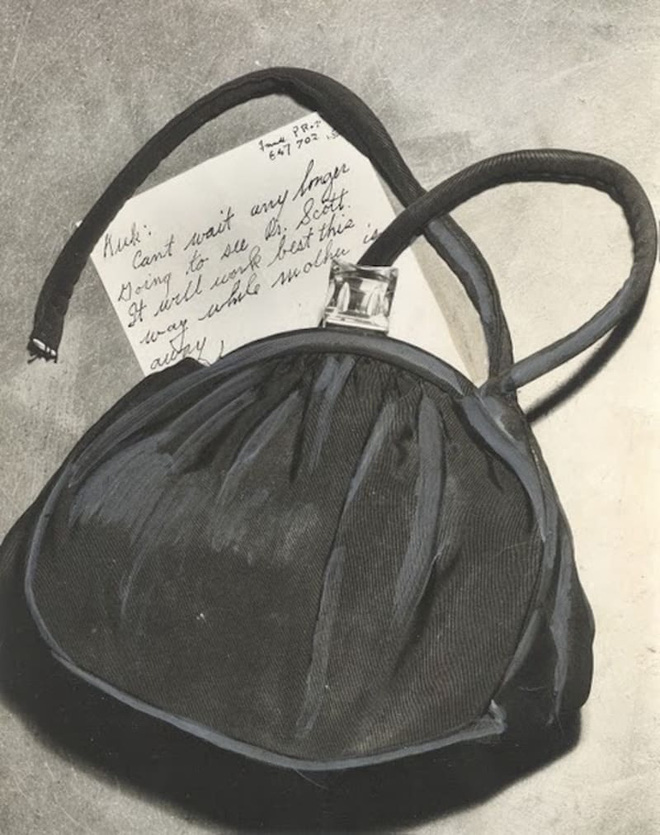 667 702
Kirk:
Cant wait any longer
Going to see Dr. Scott.
It will work best this
way while mother is
away